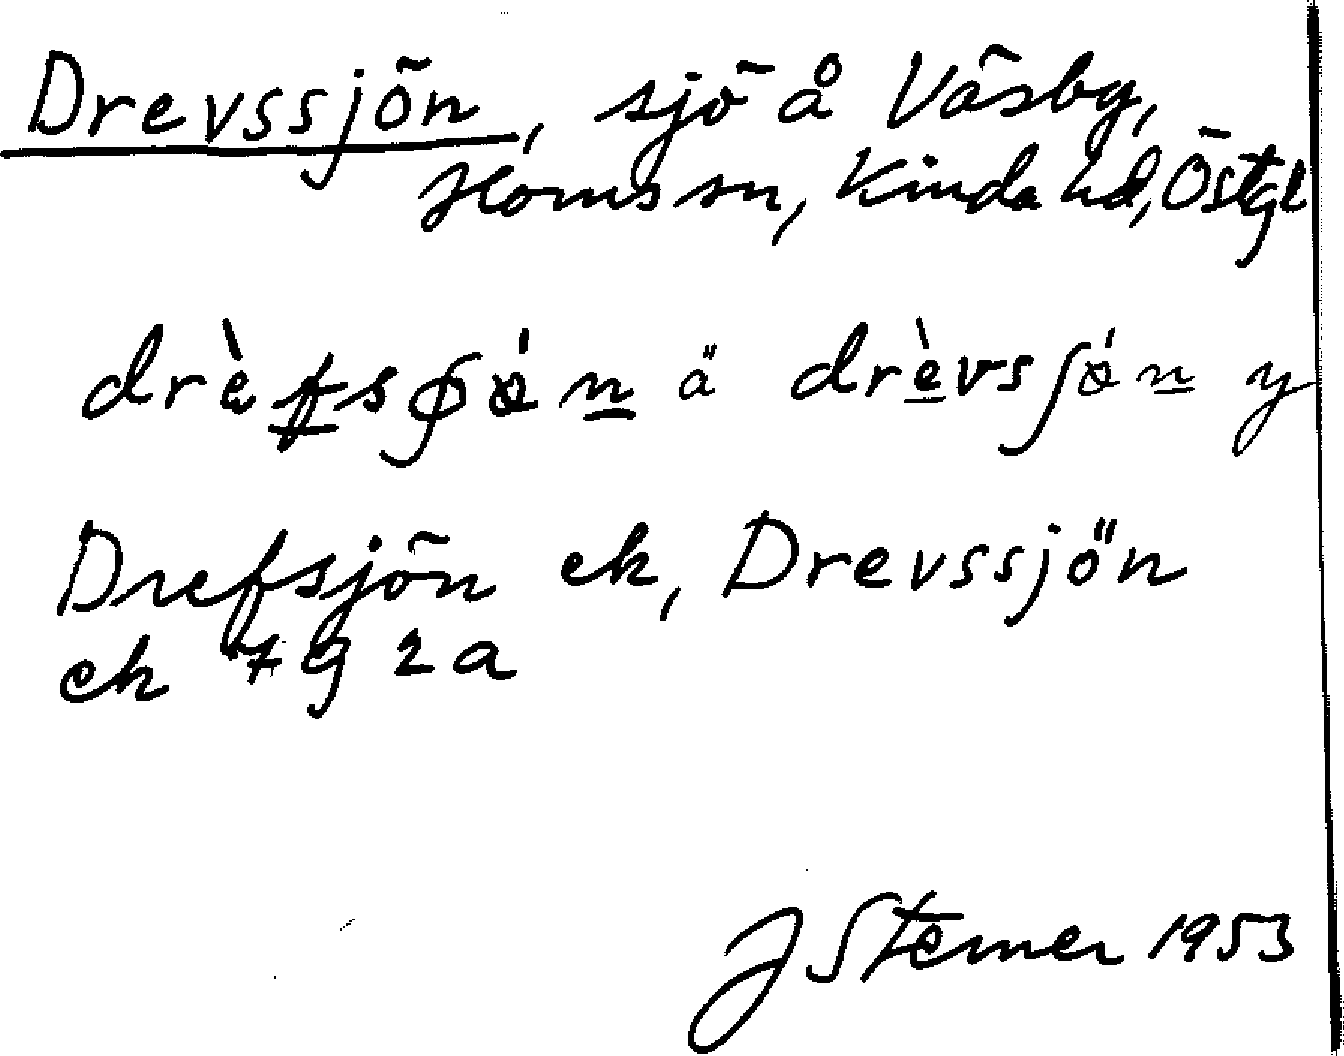 Drevssjön, sjö å Väsby,
Horns sn, Kinda hd, Östgl
drèfsʃø̀n ä drèvsʃø̀n y
Drefsjön ek, Drevssjön
ek 7g 2a
J Sterner 1953